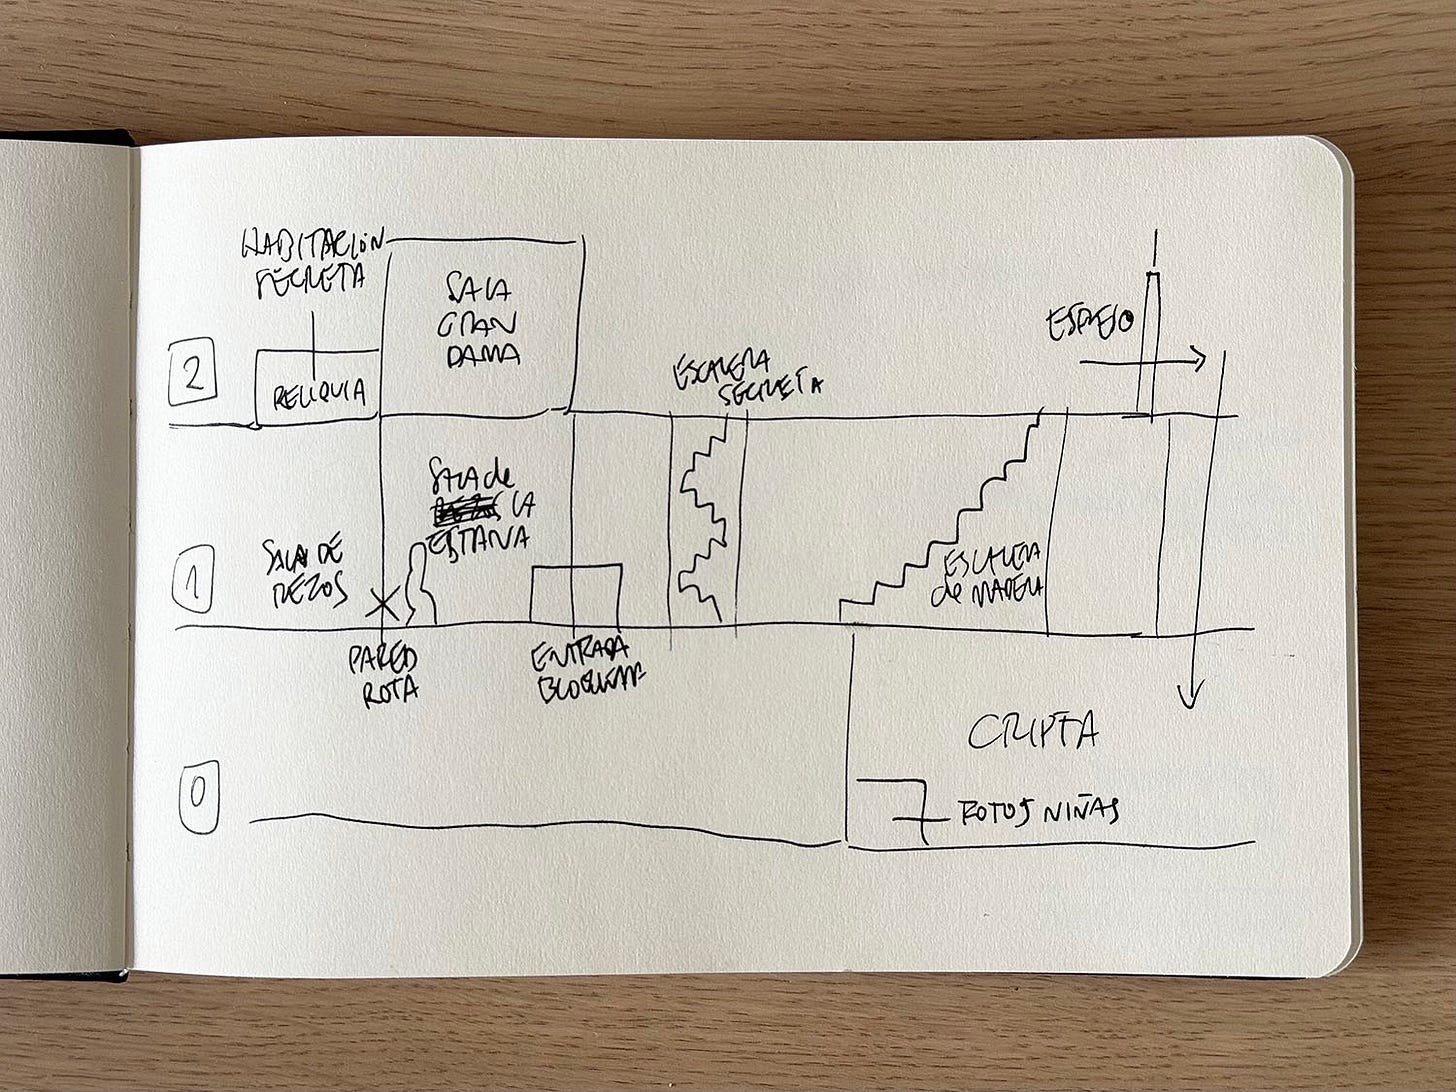 HABITACIÓN
SECRETA
SALA
GRAN
DAMA
ESPEJO
2
RELIQUIA
ESCALERA
SECRETA
SALA de
LA
ESTANA
SALA DE
REZOS
1
ESCALERA
de MADERA
PARED
ROTA
ENTRADA
CRIPTA
0
FOTOS NIÑAS